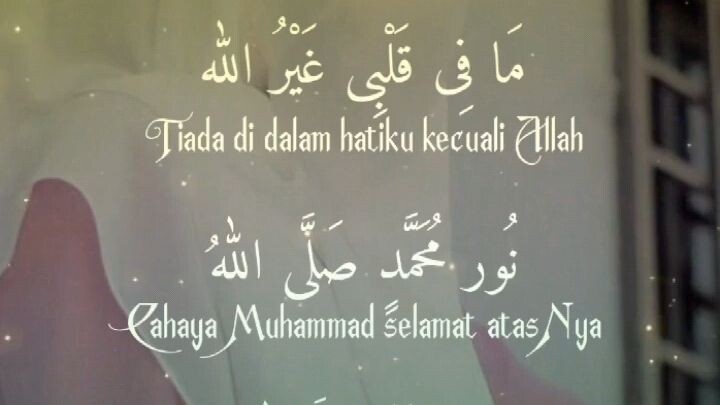 مَا فِي قَلْبِي غَيْرُ الله
Tiada di dalam hatiku kecuali Allah
نُور مُحَمَّد صَلَّى اللهُ
Cahaya Muhammad selamat atasNya